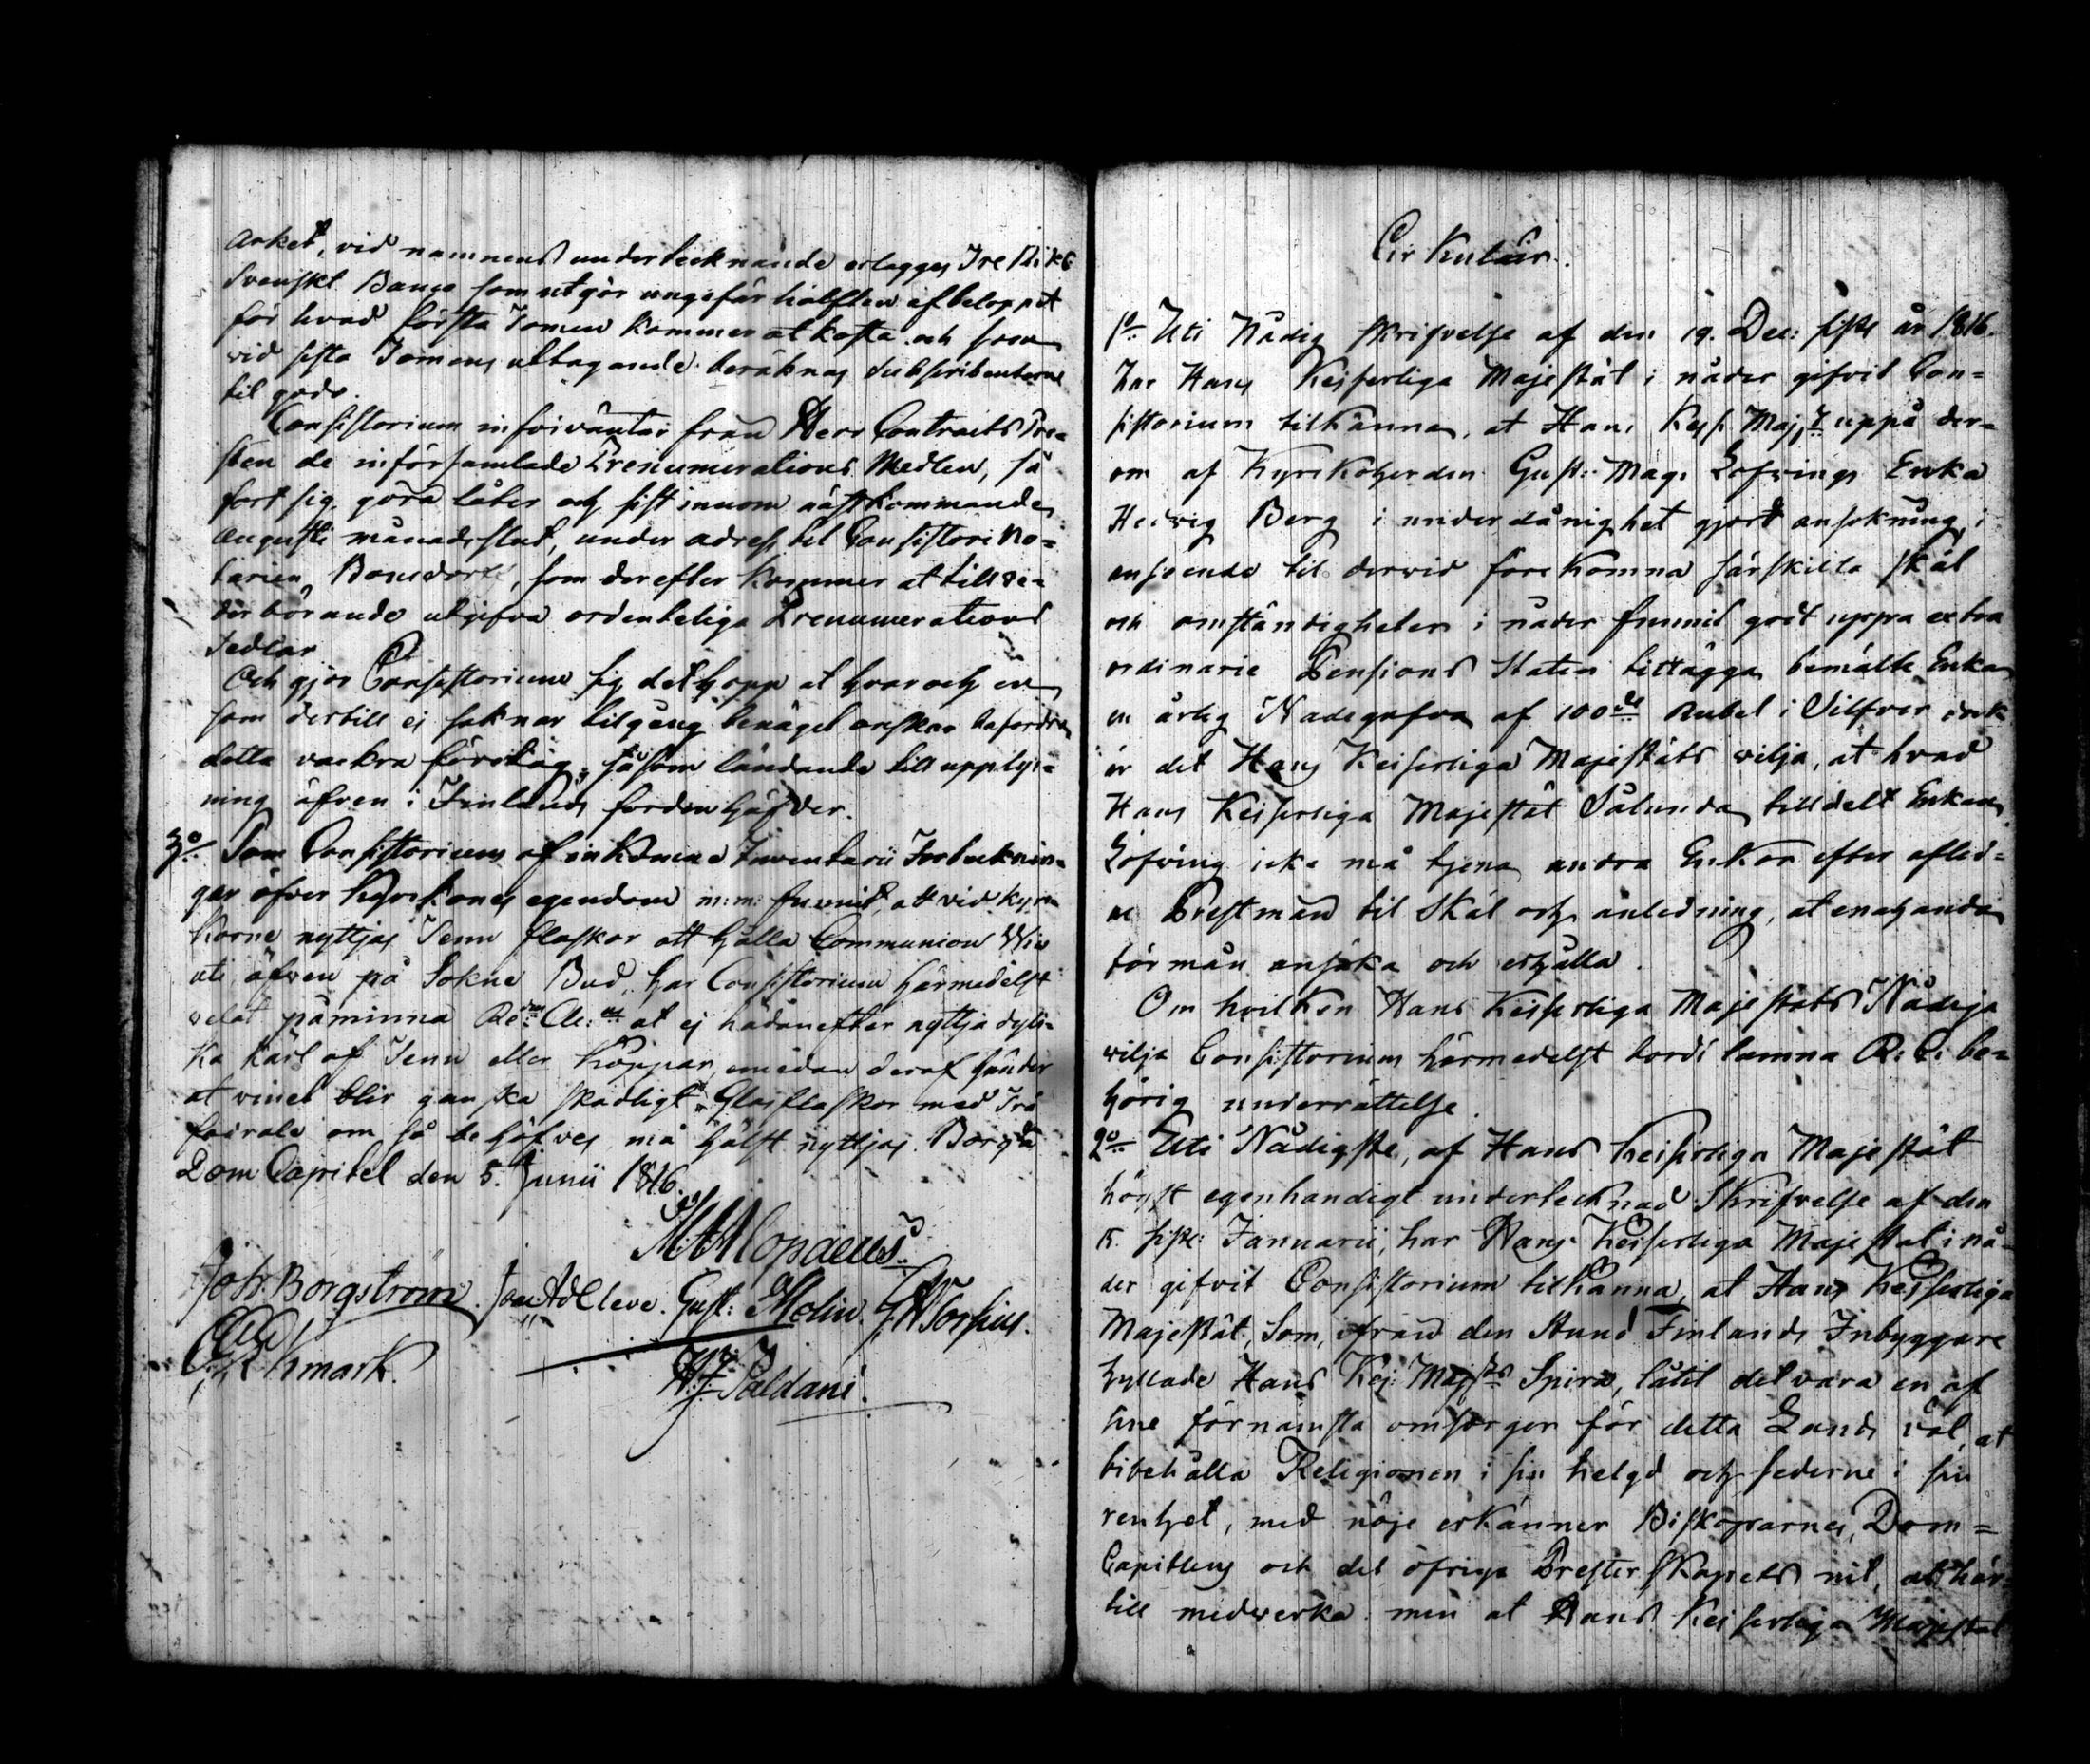 arket, vid namnens undertecknande erlägges Tre Riksd
Svenskt Banco som utgör ungefär hälften af beloppet
för hvad första Tomen kommer at kosta och som
vid sista Tomens uttagande beräknas Subscribenterne
til godo.
Consistorium infwäntar från Herr Contracts Pro-
sten de införsamlade Prenumerations Medlen, så
fort sig göra låter och sist innom nästkommande
Augusti månads slut, under adress til Consistorii No-
tarien Bonsdorff, som derefter kommer at till ve-
der börande utgifva ordenteliga Prenumerations
Sedlar
Och gjör Consistorium sig det hopp at hvar och en
som dertill ej saknar tilgång benäget önskar befordra
detta vackra förslag, såsom ländande till upplys-
ning äfven i Finlands fordna häfder.
3o Som Consistorium af inkomne Inventarii Förtecknin-
gar öfver kyrkones egendom m: m: funnit, att vid kyr-
korne nyttjas Tenn flaskor att hålla Communion Win
uti äfwen på Sokne Bud, har Consistorium härmedelst
velat påminna Re: Cle: at ej hädanefter nyttja dyli-
ka kärl af Tenn eller koppar, emedan deraf händer
at vinet blir ganska skadligt. Glasflaskor med Trä
foirale om så behöfves må hälst nyttjas. Borgå
Dom Capitel den 5. Junii 1816.
M. Alopaeus.
Joh. Borgström. Joh Ad Cleve. Gust: Molin.
Ekmark.
Paldani.
Cirkulär.
1o Uti Nådig skrifvelse af den 19. Dec: sistl. år 1816.
har Hans Keiserliga Majestät i nåder gifvit Con=
sistorium tilkänna, at Hans Keis Majt uppå der=
om af Kyrkoherden Gust: Mag: Löfwings Enka
Hedvig Berg i underdånighet gjord ansökning, i
anseende til dervid förekomna särskilta skäl
och omständigheter i nåder funnit godt uppå extra
ordinarie Pensions Staten tillägga bemälte Enka
en årlig Nådegåfva af 100de Rubel i Silfver dock
är det Hans Keiserliga Majestäts vilja, at hvad
Hans Keiserliga Majestät Sålunda tilldelt Enkan
Löfving icke må tjena andra Enkor efter aflid=
ne Prestmän til Skäl och anledning, at enahanda
förmån ansöka och erhålla.
Om hvilken Hans Keiserliga Majestäts Nådiga
vilja Consistorium härmedelst bordt lämna R: C: be=
hörig underrättelse.
2o Uti Nådigste, af Hans Keiserliga Majestät
högst egenhändigt undertecknad Skrifvelse af den
15. sistl: Januarii, har Hans Keiserliga Majestät i nå-
der gifvit Consistorium tilkänna, at Hans Keiserliga
Majestät, Som, ifrån den stund Finlands Inbyggare
hyllade Hans Kej: Majsts Spira, låtit det vara en af
sine förnämsta omsorger för detta Lands väl, at
bibehålla Religionen i sin helgd och sederne i sin
renhet, med nöje erkänner Biskoparnes, Dom=
Capitlens och det öfriga Presterskapets nit, at här-
till medverka men at Hans Keiserliga Majestät